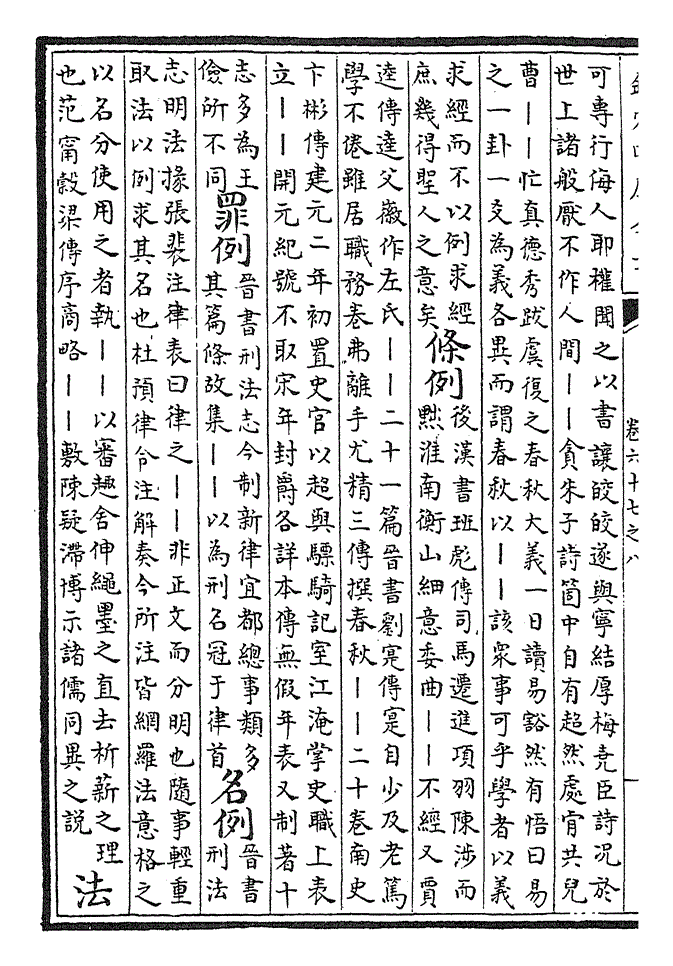 卷六十七之八
可專行侮人耶權聞之以書讓皎皎遂與寧結厚梅堯臣詩况於
世上諸般厭不作人間——貪朱子詩箇中自有超然處肯共兒
曹——忙真德秀跋虞復之春秋大義一日讀易豁然有悟曰易
之一卦一爻為義各異而謂春秋以——該衆事可乎學者以義
求經而不以例求經
庶幾得聖人之意矣
條例
後漢書班彪傳司馬遷進項羽陳涉而
黜淮南衡山細意委曲——不經又賈
逵傳逵父徽作左氏——二十一篇晉書劉寔傳寔自少及老篤
學不倦雖居職務卷弗離手尤精三傳撰春秋——二十卷南史
卞彬傳建元二年初置史官以超與驃騎記室江淹掌史職上表
立——開元紀號不取宋年封爵各詳本傳無假年表又制著十
志多為王
儉所不同
罪例
晉書刑法志今制新律宜都總事類多
其篇條故集——以為刑名冠于律首
名例
晉書
刑法
志明法掾張裴注律表曰律之——非正文而分明也隨事輕重
取法以例求其名也杜預律令注解奏今所注皆網羅法意格之
以名分使用之者執——以審趣舍伸繩墨之直去析薪之理
也范甯榖梁傳序商略——敷陳疑滯博示諸儒同異之說
法